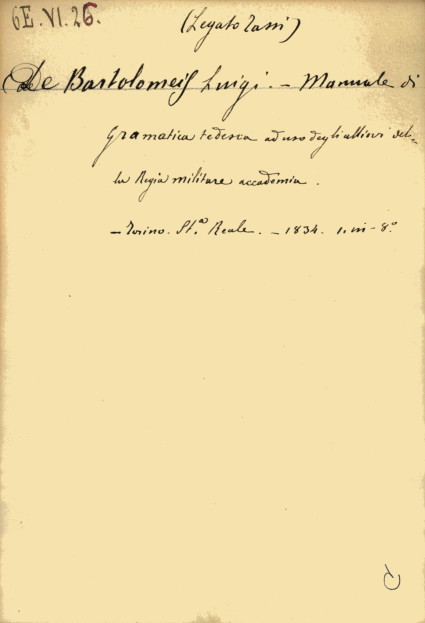 6E.VI.26.
(Legato Tassi)
De Bartolomeis Luigi. — Manuale di
gramatica tedesca ad uso degli allievi del-
la Regia militare accademia.
— Torino. St.ª Reale. — 1834. 1. in-8.°